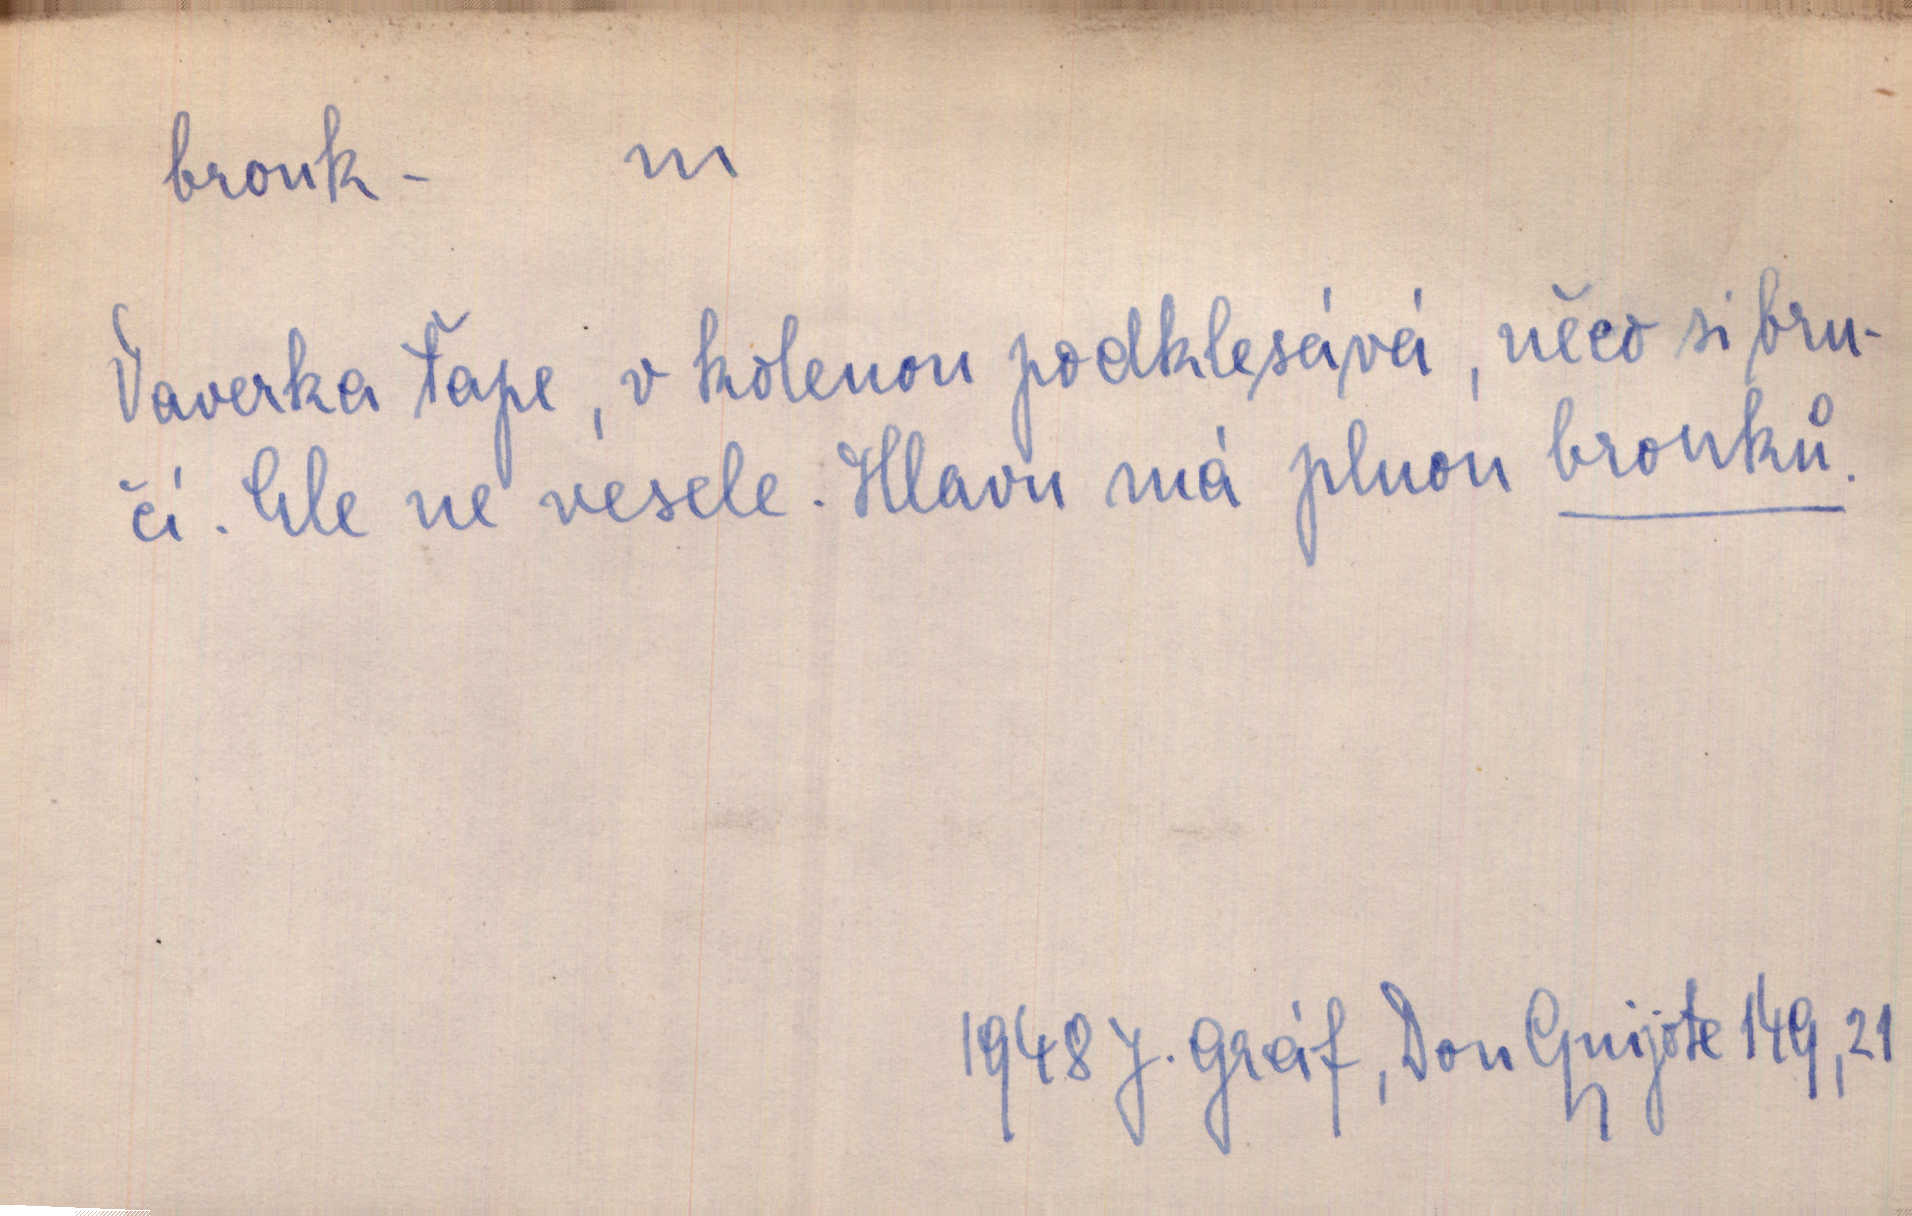 brouk - m
Vaverka ťape, v kolenou podklesává, něco si bru-
čí. Ale ne vesele. Hlavu má plnou brouků.
1948 J. Gráf, Don Quijote 149,21